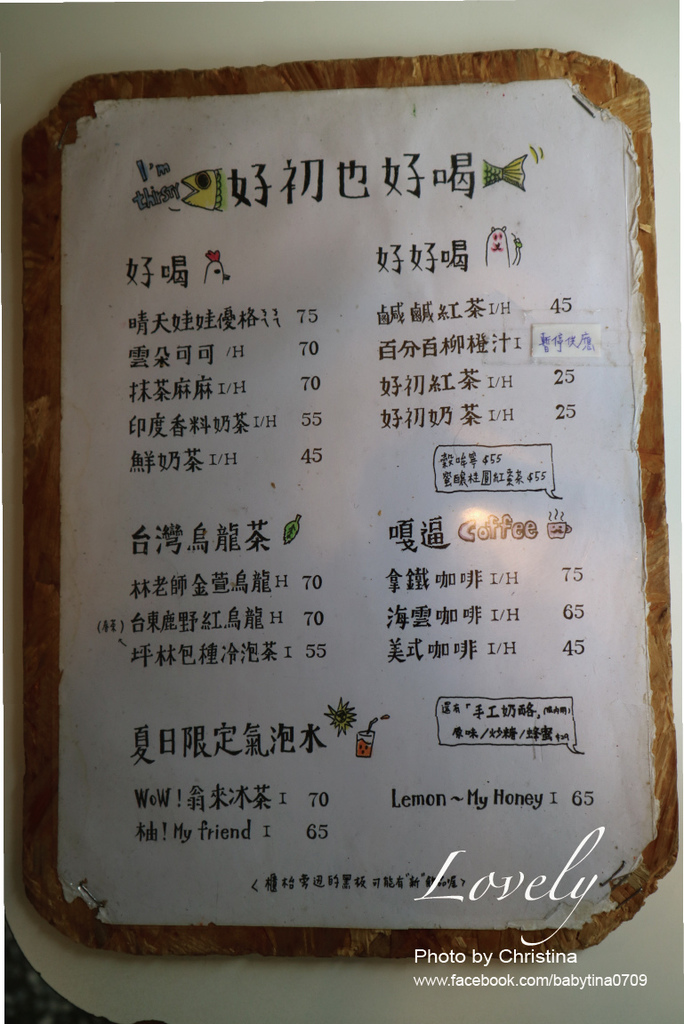 I'm thirsty 好初也好喝
好喝
晴天娃娃優格冰 75
雲朵可可 /H 70
抹茶麻麻 I/H 70
印度香料奶茶 I/H 55
鮮奶茶 I/H 45
好好喝
鹹鹹紅茶 I/H 45
百分百柳橙汁 I 暫停供應
好初紅茶 I/H 25
好初奶茶 I/H 25
$55
蜜釀桂圓紅棗茶 $55
台灣烏龍茶
林老師金萱烏龍 H 70
台東鹿野紅烏龍 H 70
坪林包種冷泡茶 I 55
嘎逼 Coffee
拿鐵咖啡 I/H 75
海雲咖啡 I/H 65
美式咖啡 I/H 45
還有「手工奶酪」
原味/炒糖/蜂蜜
夏日限定氣泡水
WoW!翁來冰茶 I 70
柚!My friend I 65
Lemon~My Honey I 65
<櫃枱旁邊的黑板可能有"新"
Lovely
Photo by Christina
www.facebook.com/babytina0709